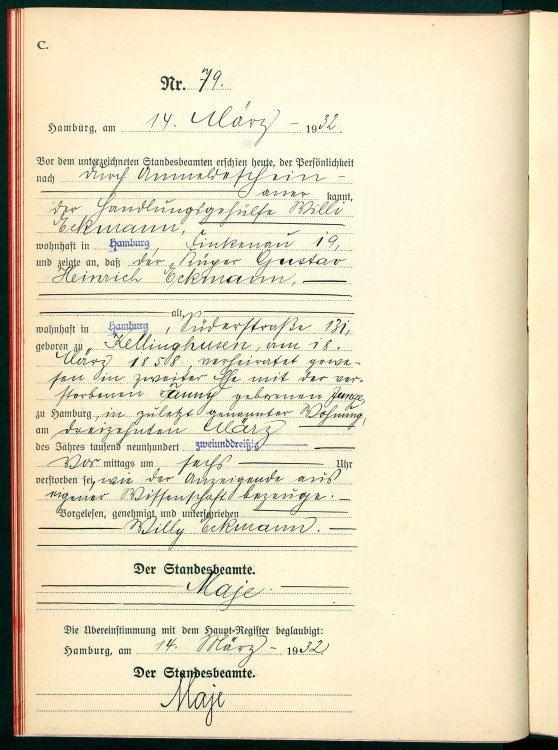 C.
Nr. 79.
Hamburg, am 14. März 1932.
Vor dem unterzeichneten Standesbeamten erschien heute, der Persönlichkeit
nach durch Anmeldeschein
aner kannt,
der Handlungsgehülfe Willi
Eckmann,
wohnhaft in Hamburg, Finkenau 19,
und zeigte an, daß der Küper Gustav
Heinrich Eckmann,
alt,
wohnhaft in Hamburg, Süderstraße 131,
geboren zu Kellinghusen, am 18.
März 1858, verheiratet gewe-
sen in zweiter Ehe mit der ver-
storbenen Fanny gebornen Junge,
zu Hamburg, in zuletzt genannter Wohnung,
am dreizehnten März
des Jahres tausend neunhundert zweiunddreißig
Vor mittags um sechs Uhr
verstorben sei, wie der Anzeigende aus
eigener Wissenschaft bezeuge.
Vorgelesen, genehmigt und unterschrieben
Willy Eckmann.
Der Standesbeamte.
Maje
Die Übereinstimmung mit dem Haupt-Register beglaubigt:
Hamburg, am 14. März 1932
Der Standesbeamte.
Maje